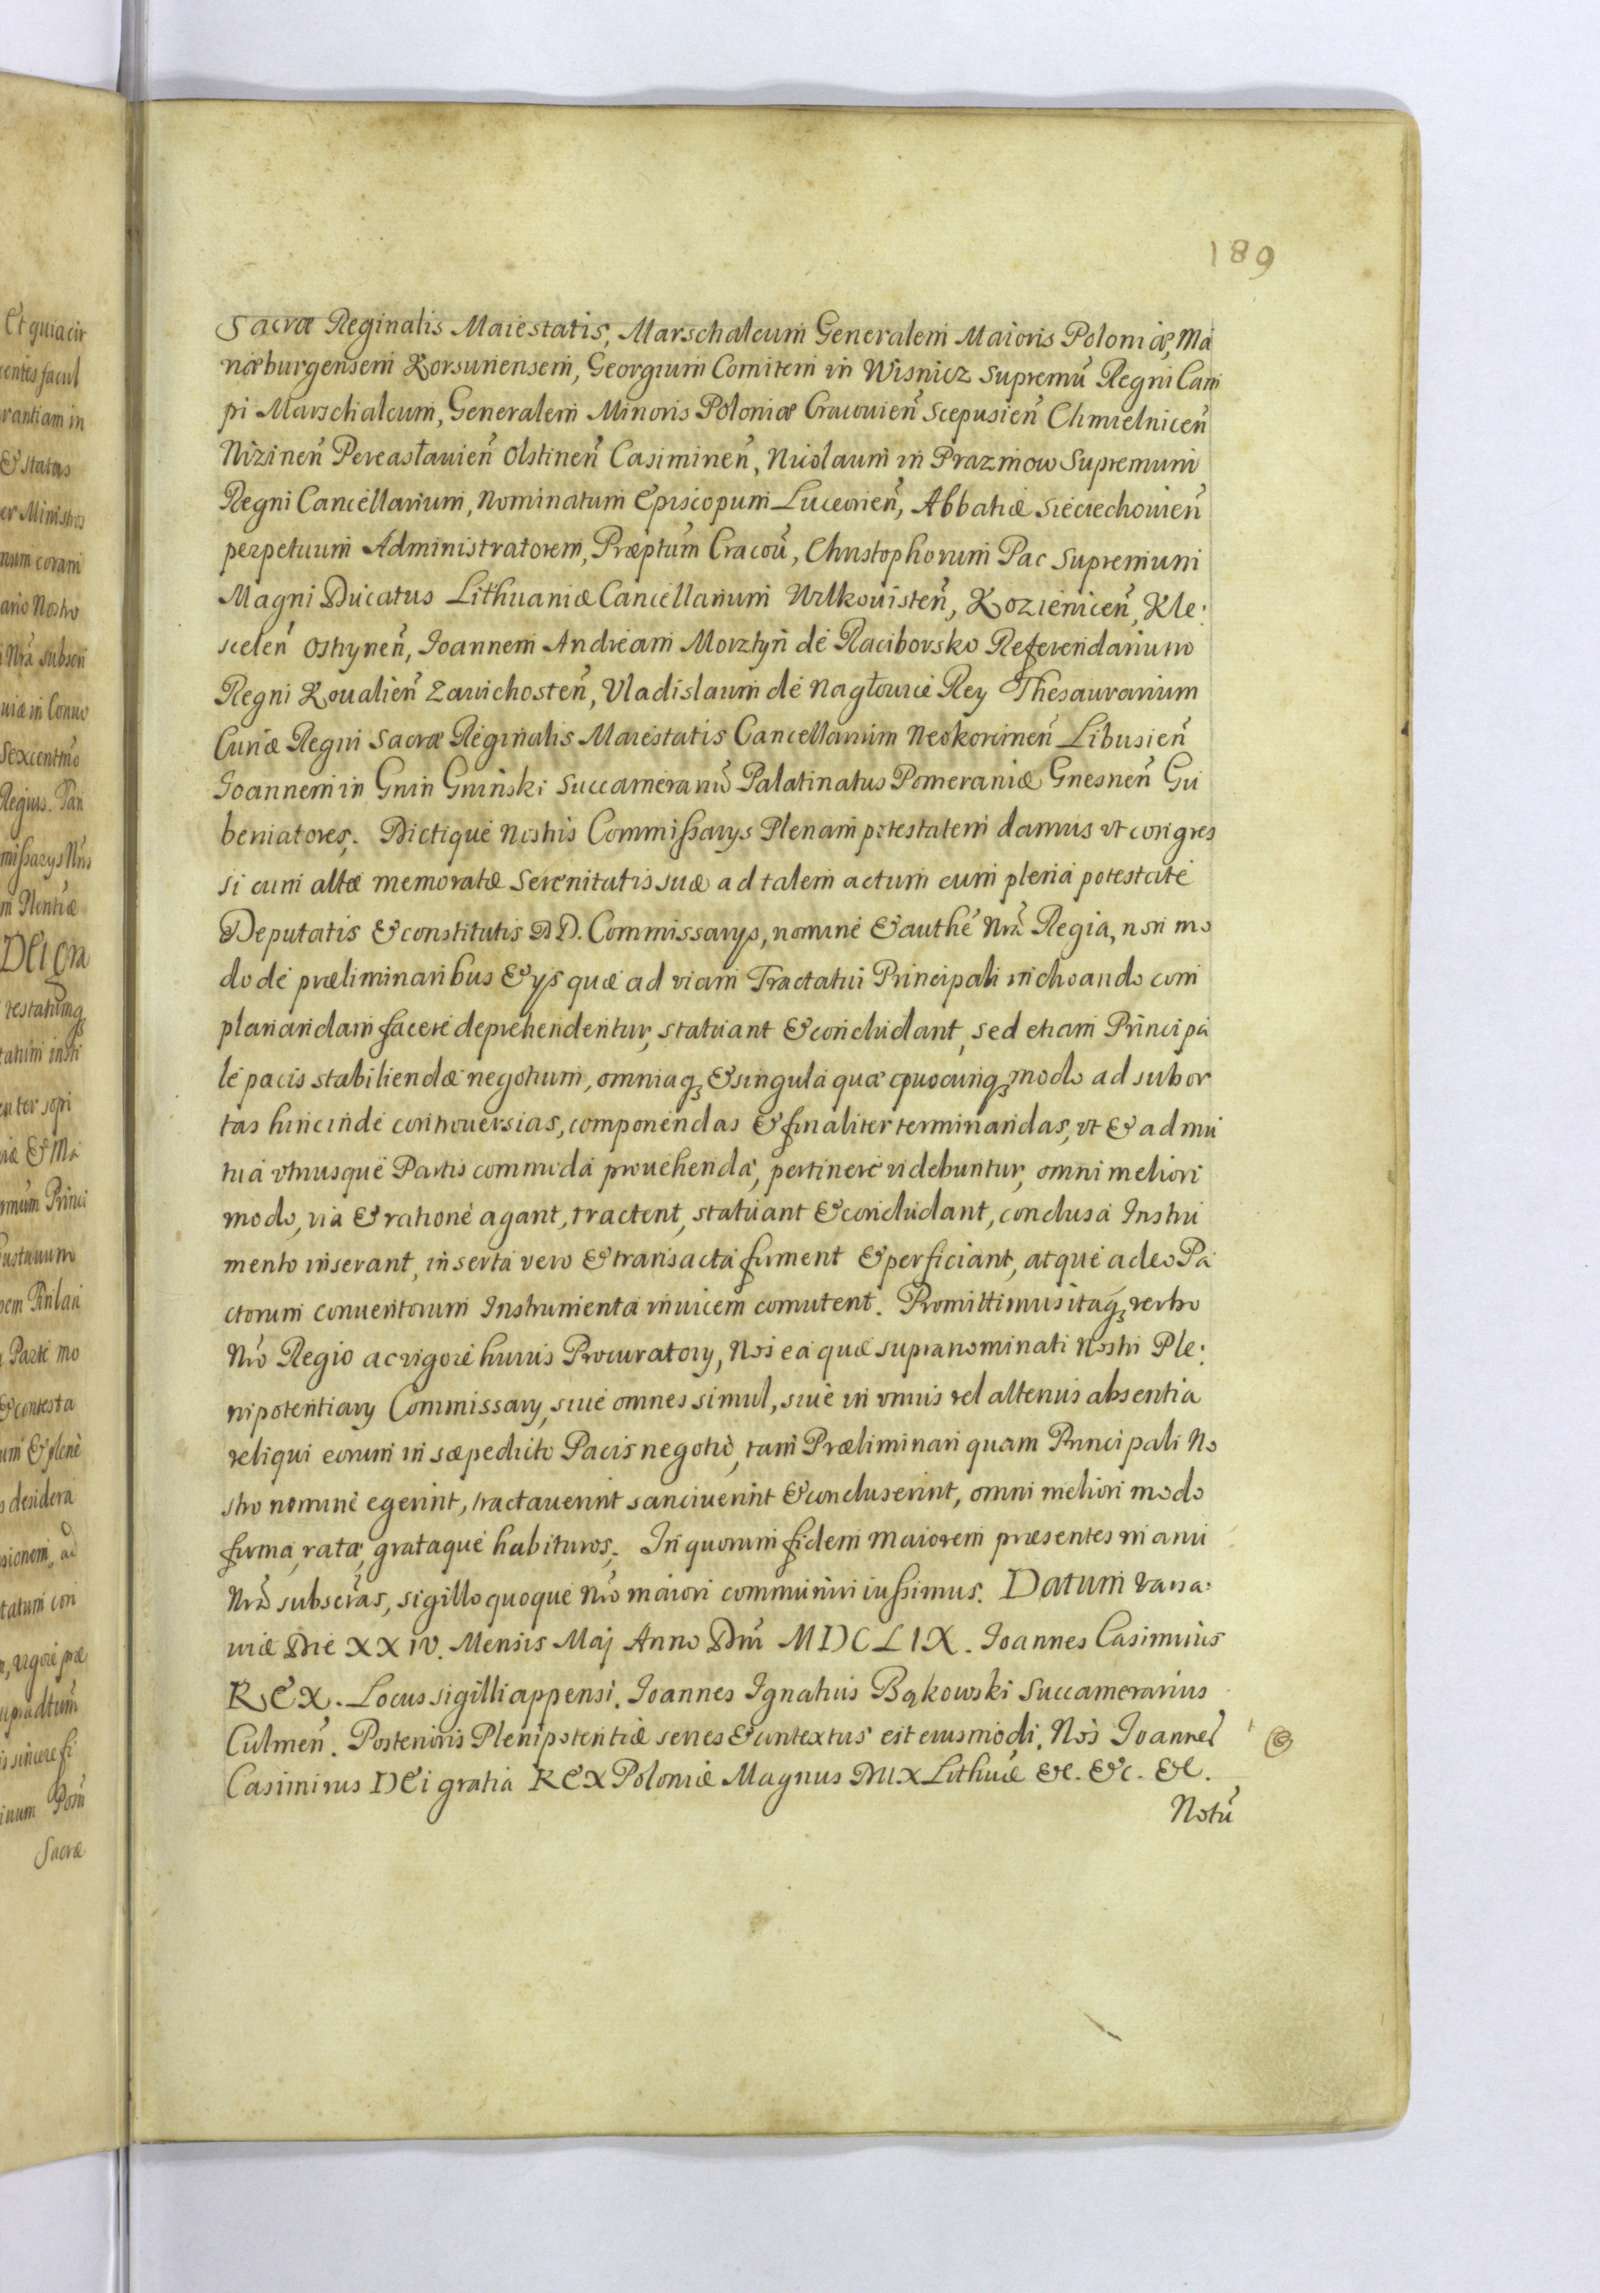 189
Et quia cir
centes facul
rantiam in
& status
er Ministros
num coram
ario Nostro
Nrã subscri
uiæ in Conuo
Sexcentmo
Regius. Pan
missarys Nris
m Plentiæ
DEI Gra
testatumq
tatum insti
nter sopi
iæ & Ma
mum Princi
ustauum
Parte mo
& contesta
um & plene
s desidera
sionem, ad
tatum con
n, vigore præ
supradtum
is sincere fi
inum Posñ
Sacræ
Sacræ Reginalis Maiestatis, Marschalcum Generalem Maioris Poloniæ, Ma
riæburgensem Korsunensem, Georgium Comitem in Wisnicz Supremũ Regni Cam
pi Marschalcum, Generalem Minoris Poloniæ Cracouieñ Scepusieñ Chmielniceñ
Nizineñ Pereasłauieñ Olstineñ Casimineñ, Nicolaum in Prazmow Supremum
Regni Cancellarium, Nominatum Episcopum Luceorieñ, Abbatiæ Sieciechouieñ
perpetuum Administratorem, Præptum Cracoũ, Christophorum Pac Supremum
Magni Ducatus Lithuaniæ Cancellarium Wilkouisteñ, Kozieniceñ, Kle:
sceleñ Ostryneñ, Ioannem Andream Morztyn de Raciborsko Referendarium
Regni Koualieñ Zawichosteñ, Vladislaum de Nagłowice Rey Thesaurarium
Curiæ Regni Sacræ Reginalis Maiestatis Cancellarium Neokorcineñ Libusieñ
Ioannem in Gnin Gninski Succamerariũ Palatinatus Pomeraniæ Gnesneñ Gu
berniatores,. Dictique Nostris Commissarys Plenam potestatem damus vt congres
si cum altæ memoratæ Serenitatis suæ ad talem actum cum plena potestate
Deputatis & constitutis DD. Commissarys, nomine & authe Nrã Regia, non mo
do de præliminaribus & ys quæ ad viam Tractatui Principali inchoando com
planandam facere deprehendentur, statuant & concludant, sed etiam Principa
le pacis stabiliendæ negotium, omniaq, & singula quæ quocunq, modo ad subor
tas hincinde controuersias, componendas & finaliter terminandas, vt & ad mu
tua vtriusque Partis commoda prouehenda, pertinere videbuntur, omni meliori
modo, via & ratione agant, tractent, statuant & concludant, conclusa Instru
mento inserant, inserta vero & transacta firment & perficiant, atque adeo Pa
ctorum conuentorum Instrumenta inuicem comutent. Promittimus itaq, verbo
Nrõ Regio ac vigore huius Procuratory, Nos ea quæ supranominati Nostri Ple:
nipotentiary Commissary, siue omnes simul, siue in vnius vel alterius absentia
reliqui eorum in sæpedicto Pacis negotio, tam Præliminari quam Principali No
stro nomine egerint, tractauerint sanciuerint & concluserint, omni meliori modo
firma, rata, grataque habituros,. In quorum fidem maiorem præsentes manu
Nrã subscras, sigillo quoque Nrõ maiori communiri iussimus. DATUM Varsa:
uiæ Die XXIV. Mensis Maj Anno Dñi MDCLIX. Ioannes Casimirus
REX. Locus sigilli appensi. Ioannes Ignatius Bąkowski Succamerarius
Culmeñ. Posterioris Plenipotentiæ series & contextus est eiusmodi. Nos Ioannes
Casimirus DEi gratia REX Poloniæ Magnus DUX Lithuæ &c. &c. &c.
Notũ